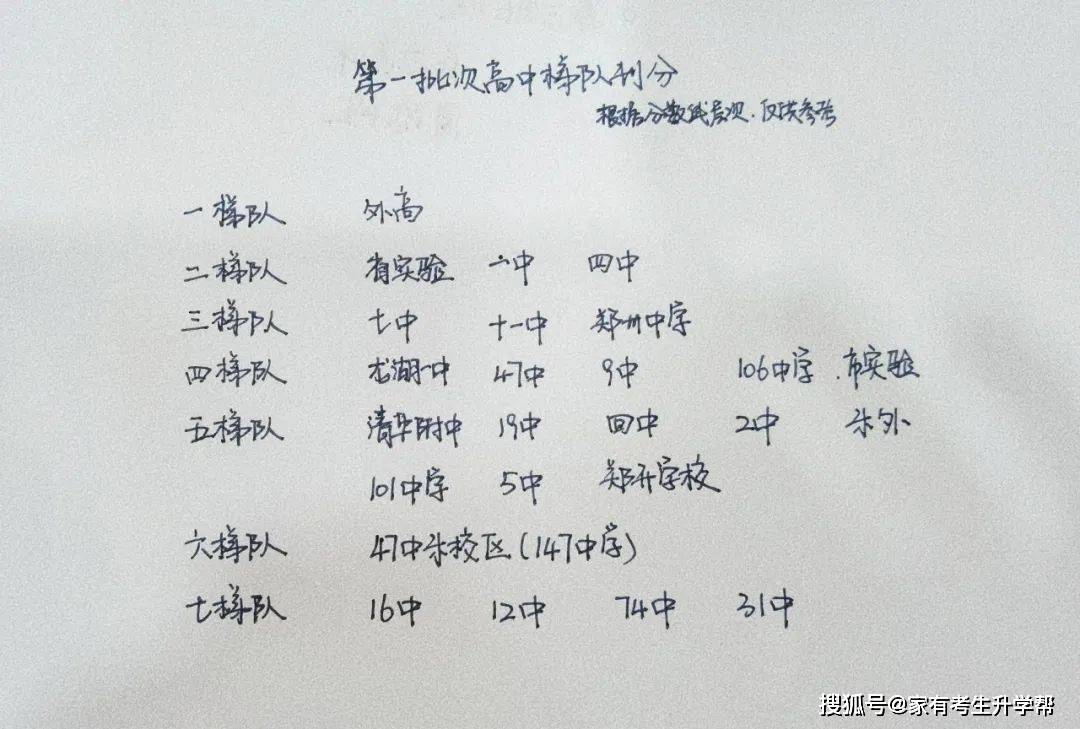 第一批次高中梯队划分
根据分数线层次.仅供参考
一梯队 外高
二梯队 省实验 一中 四中
三梯队 七中 十一中 郑州中学
四梯队 龙湖一中 47中 9中 106中学 .市实验
五梯队 清华附中 19中 回中 2中 东外
101中学 5中 郑开学校
六梯队 47中东校区(147中学)
七梯队 16中 12中 74中 31中
搜狐号@家有考生升学帮